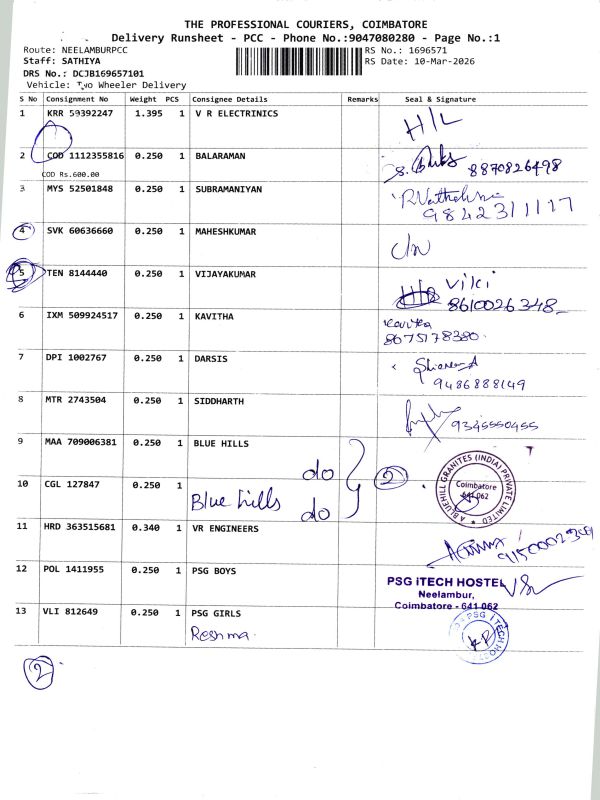 THE PROFESSIONAL COURIERS, COIMBATORE
Delivery Runsheet - PCC - Phone No.:9047080280 - Page No.:1
Route: NEELAMBURPCC
RS No.: 1696571
Staff: SATHIYA
RS Date: 10-Mar-2026
DRS No.: DCJB169657101
Vehicle: Two Wheeler Delivery
S No Consignment No Weight PCS Consignee Details Remarks Seal & Signature
1 KRR 59392247 1.395 1 V R ELECTRINICS H/L
2 COD 1112355816 0.250 1 BALARAMAN 8870826498
COD Rs.600.00
3 MYS 52501848 0.250 1 SUBRAMANIYAN
9842311117
4 SVK 60636660 0.250 1 MAHESHKUMAR
5 TEN 8144440 0.250 1 VIJAYAKUMAR Viki
8610026348
6 IXM 509924517 0.250 1 KAVITHA Kavitha
8675178380
7 DPI 1002767 0.250 1 DARSIS
9486888149
8 MTR 2743504 0.250 1 SIDDHARTH 9345550455
9 MAA 709006381 0.250 1 BLUE HILLS do 2
10 CGL 127847 0.250 1 Blue hills do
A BLUEHILL GRANITES (INDIA) PRIVATE LIMITED
Coimbatore
641 062
11 HRD 363515681 0.340 1 VR ENGINEERS
12 POL 1411955 0.250 1 PSG BOYS
PSG iTECH HOSTEL
Neelambur,
Coimbatore - 641 062
13 VLI 812649 0.250 1 PSG GIRLS
Reshma
PSG iTECH
2